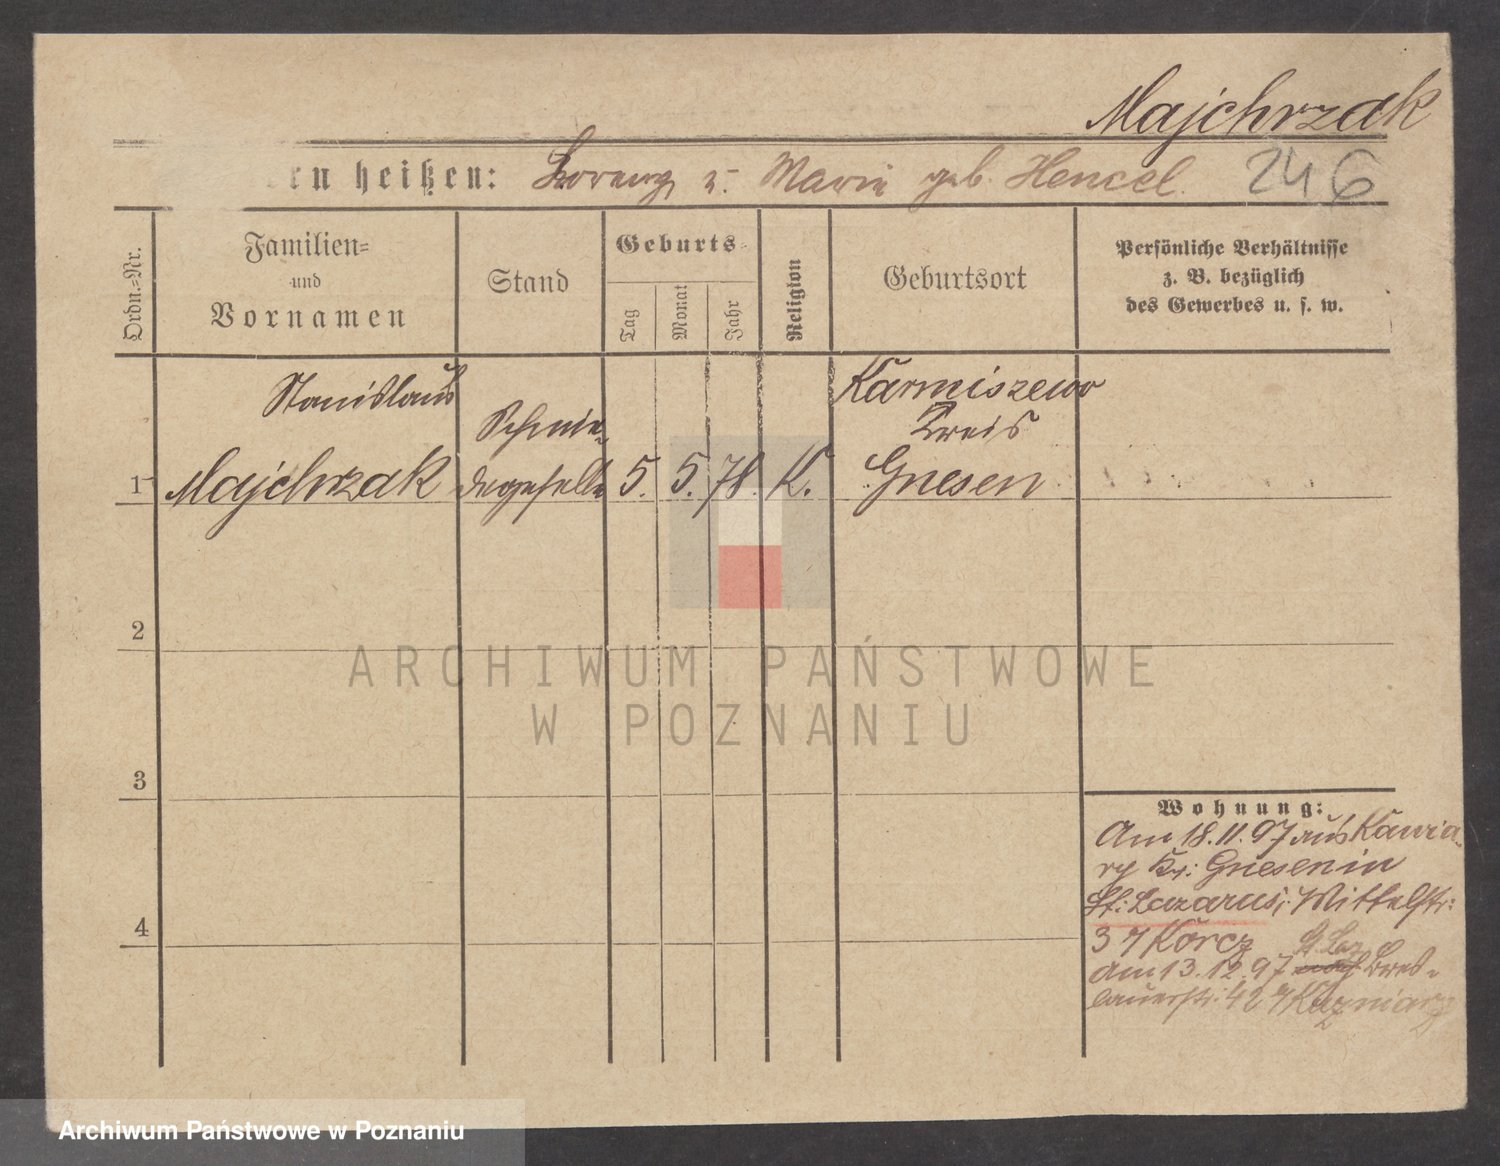 Majchrzak
ern heißen: Lorenz u. Marie geb. Hencel. 246
Ordn.=Nr.
Familien=
und
Vornamen
Stand
Geburts=
Tag
Monat
Jahr
Religion
Geburtsort
Persönliche Verhältnisse
z. B. bezüglich
des Gewerbes u. s. w.
Stanislaus
Majchrzak
Schmie-
degeselle
1
5. 5. 78. K.
Karmiszewo
Kreis
Gnesen
2
3
4
Wohnung:
Am 18.11.97 aus Kawia-
ry Kr: Gnesen in
St: Lazarus, Mittelstr:
3 Korcz
St. Laz.
am 13.12.97 Bres-
lauerstr: 42 Kuzniarz
ARCHIWUM PAŃSTWOWE
W POZNANIU
Archiwum Państwowe w Poznaniu